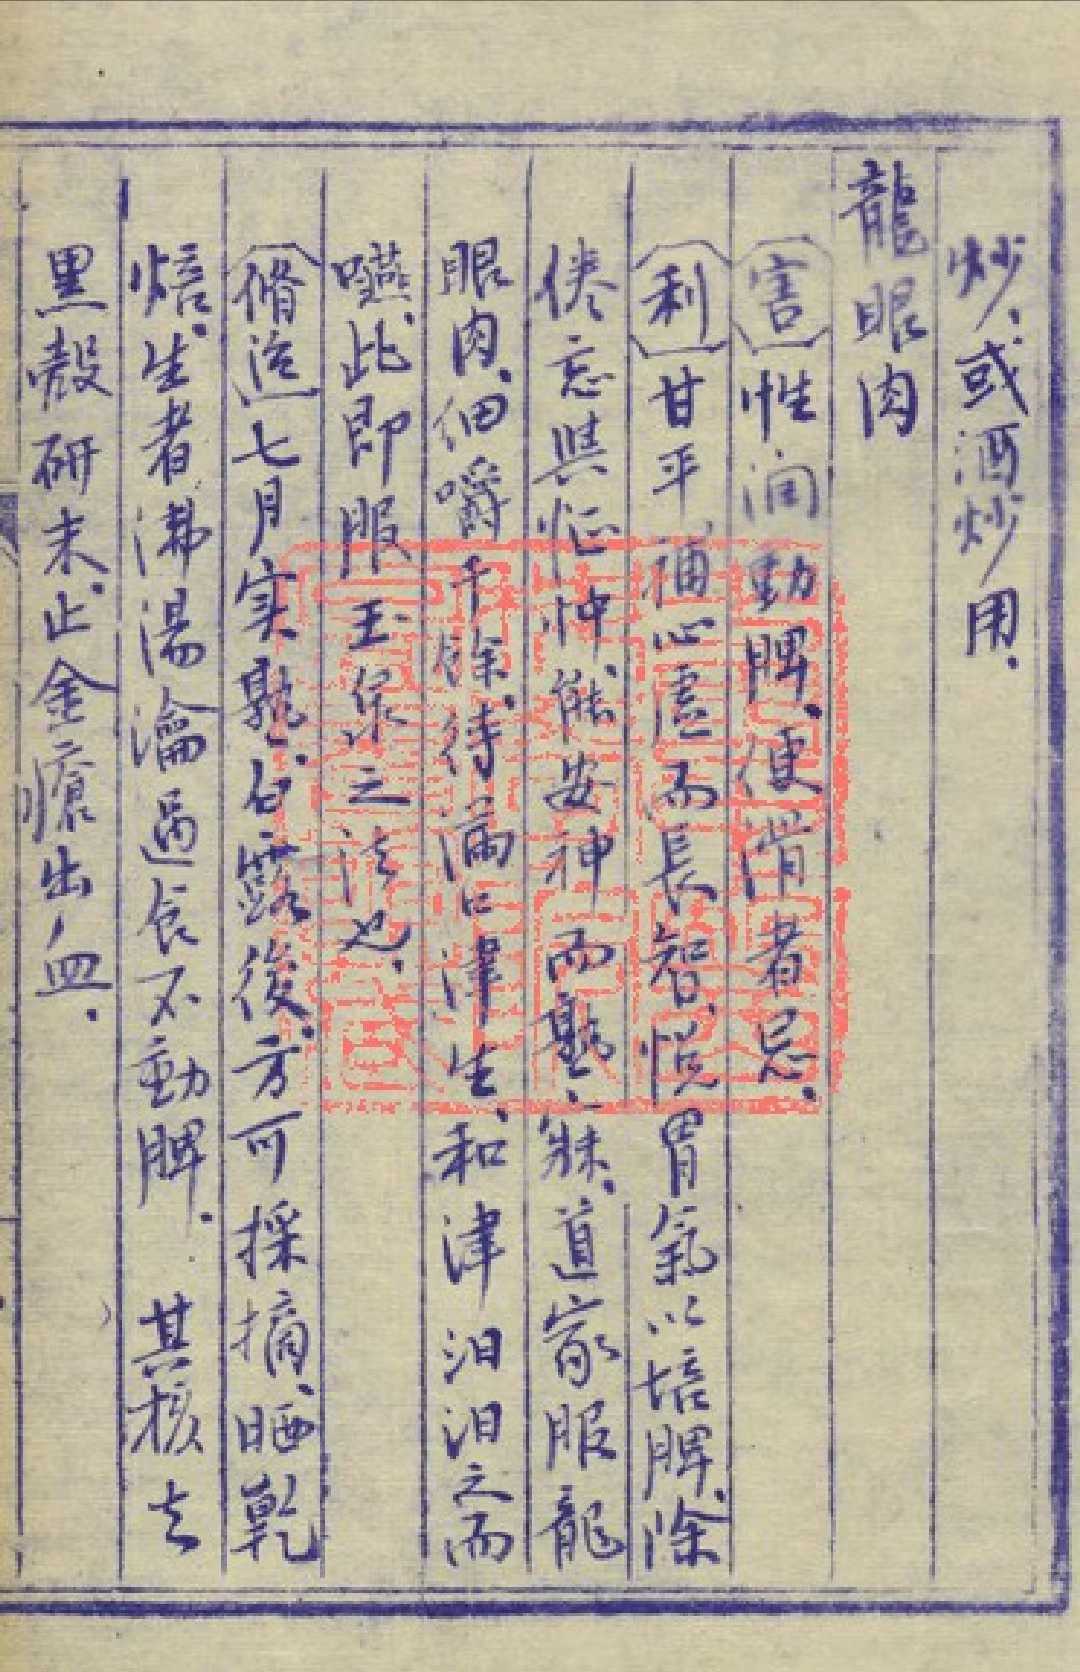 炒、或酒炒用.
龍眼肉
害 性润動脾、便滑者忌.
利 甘平補心虛而長智、悅胃氣以培脾、除
倦忘與怔忡、能安神而熟寐、道家服龍
眼肉、细嚼千餘、待滿口津生、和津汩汩之而
嚥、此即服玉泉之法也.
脩造 七月实熟、白露後、方可採摘、晒乾
焙、生者沸湯瀹過食不動脾. 其核去
黑殼研末、止金瘡出血.